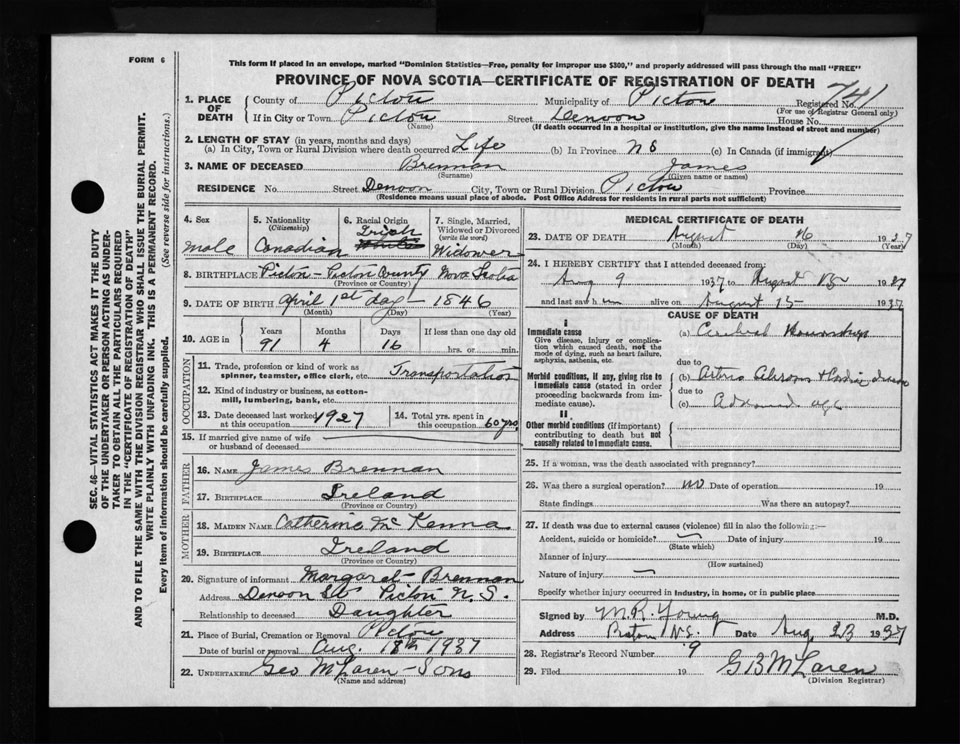 FORM 6
This form if placed in an envelope, marked "Dominion Statistics—Free, penalty for improper use $300," and properly addressed will pass through the mail "FREE"
PROVINCE OF NOVA SCOTIA—CERTIFICATE OF REGISTRATION OF DEATH
SEC. 46—VITAL STATISTICS ACT MAKES IT THE DUTY
OF THE UNDERTAKER OR PERSON ACTING AS UNDER-
TAKER TO OBTAIN ALL THE PARTICULARS REQUIRED
IN THE "CERTIFICATE OF REGISTRATION OF DEATH"
AND TO FILE THE SAME WITH THE DIVISION REGISTRAR WHO SHALL ISSUE THE BURIAL PERMIT.
WRITE PLAINLY WITH UNFADING INK. THIS IS A PERMANENT RECORD.
Every item of information should be carefully supplied. (See reverse side for instructions.)
1. PLACE OF DEATH { County of Pictou Municipality of Pictou Registered No. 741
(For use of Registrar General only)
If in City or Town Pictou Street Denoon House No.
(Name) (If death occurred in a hospital or institution, give the name instead of street and number)
2. LENGTH OF STAY (in years, months and days)
(a) In City, Town or Rural Division where death occurred Life (b) In Province N S (c) In Canada (if immigrant)
3. NAME OF DECEASED Brennan James
(Surname) (Given name or names)
RESIDENCE No. Street Denoon City, Town or Rural Division Pictou Province
(Residence means usual place of abode. Post Office Address for residents in rural parts not sufficient)
4. Sex male
5. Nationality (Citizenship) Canadian
6. Racial Origin Irish
7. Single, Married, Widowed or Divorced (write the word) Widower
8. BIRTHPLACE Pictou - Pictou County Nova Scotia
(Province or County)
9. DATE OF BIRTH April 1st day - 1846
(Month) (Day) (Year)
10. AGE in Years 91 Months 4 Days 16 If less than one day old hrs. or min.
OCCUPATION
11. Trade, profession or kind of work as spinner, teamster, office clerk, etc. Transportation
12. Kind of industry or business, as cotton-mill, lumbering, bank, etc.
13. Date deceased last worked at this occupation 1927
14. Total yrs. spent in this occupation 60 yrs.
15. If married give name of wife or husband of deceased
FATHER
16. NAME James Brennan
17. BIRTHPLACE Ireland
(Province or Country)
MOTHER
18. MAIDEN NAME Catherine McKenna
19. BIRTHPLACE Ireland
(Province or Country)
20. Signature of informant Margaret Brennan
Address Denoon St Pictou N.S.
Relationship to deceased Daughter
21. Place of Burial, Cremation or Removal Pictou
Date of burial or removal Aug. 18th 1937
22. UNDERTAKER Geo McLaren - Sons
(Name and address)
MEDICAL CERTIFICATE OF DEATH
23. DATE OF DEATH August 16 1937
(Month) (Day) (Year)
24. I HEREBY CERTIFY that I attended deceased from:
Aug 9 1937 to August 15 1937
and last saw him alive on August 15 1937
CAUSE OF DEATH
I
Immediate cause
Give disease, injury or complication which caused death, not the mode of dying, such as heart failure, asphyxia, asthenia, etc.
(a) Cerebral
due to
Morbid conditions, if any, giving rise to immediate cause (stated in order proceeding backwards from immediate cause).
(b)
due to
(c) Advanced age
II
Other morbid conditions (if important) contributing to death but not causally related to immediate cause.
25. If a woman, was the death associated with pregnancy?
26. Was there a surgical operation? no Date of operation 19
State findings Was there an autopsy?
27. If death was due to external causes (violence) fill in also the following:—
Accident, suicide or homicide? Date of injury 19
(State which)
Manner of injury
(How sustained)
Nature of injury
Specify whether injury occurred in Industry, in home, or in public place
Signed by M.R. Young M.D.
Address Pictou N.S. Date Aug 23 1937
28. Registrar's Record Number 9
29. Filed 19 G B McLaren
(Division Registrar)